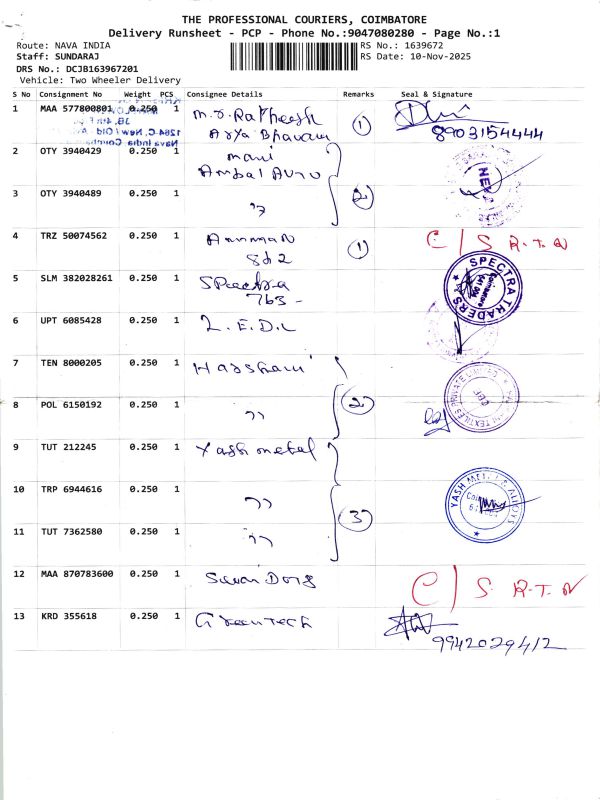 THE PROFESSIONAL COURIERS, COIMBATORE
Delivery Runsheet - PCP - Phone No.:9047080280 - Page No.:1
Route: NAVA INDIA
RS No.: 1639672
Staff: SUNDARAJ
RS Date: 10-Nov-2025
DRS No.: DCJB163967201
Vehicle: Two Wheeler Delivery
S No Consignment No Weight PCS Consignee Details Remarks Seal & Signature
1 MAA 577800801 0.250 1 M.r. Ratheesh 1
Arya Bhavan 8903154444
2 OTY 3940429 0.250 1 mani
Ambal Auto
3 OTY 3940489 0.250 1 " 2
4 TRZ 50074562 0.250 1 Amman 1 C/S R.T.N
8d2
5 SLM 382028261 0.250 1 Spectra SPECTRA TRADERS
763 -
6 UPT 6085428 0.250 1 L.E.D.L
7 TEN 8000205 0.250 1 Harshani
8 POL 6150192 0.250 1 " 2
9 TUT 212245 0.250 1 Yash metal
10 TRP 6944616 0.250 1 " YASH METALS & ALLOYS
11 TUT 7362580 0.250 1 " 3
12 MAA 870783600 0.250 1 C/S R.T.N
13 KRD 355618 0.250 1 Greentech
9942029412